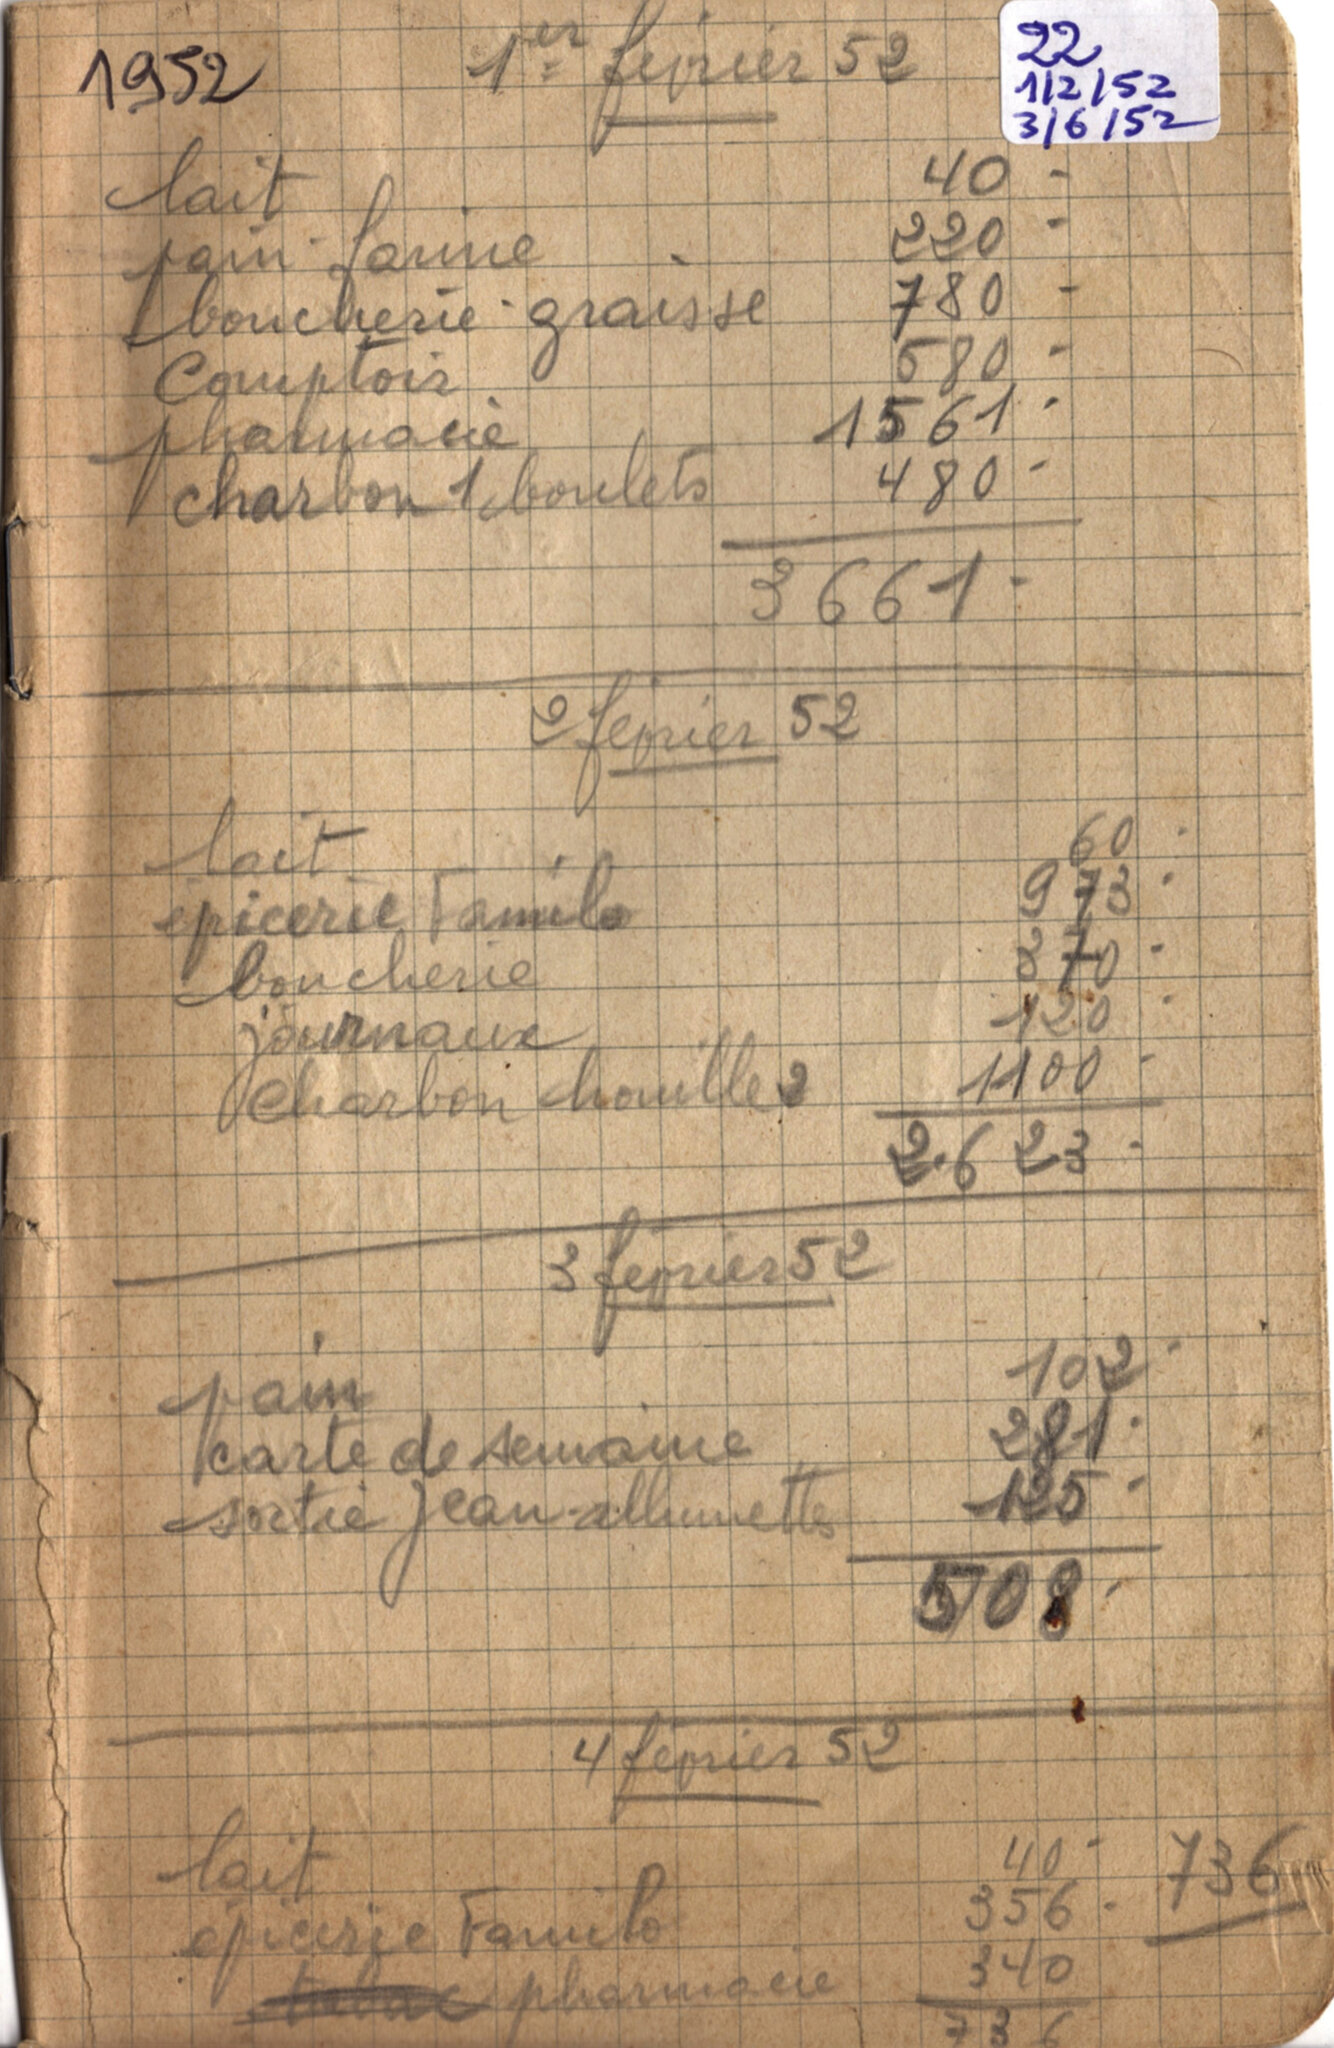 1952
1er février 52
22
1/2/52
3/6/52
lait 40 -
pain - farine 220 -
boucherie - graisse 780 -
Comptoir 580 -
pharmacie 1561 -
charbon 1 boulets 480 -
3661 -
2 février 52
lait 60 -
épicerie Familo 973 -
boucherie 370 -
journaux 120 -
charbon houille 2 1100 -
2.623 -
3 février 52
pain 102 -
carte de semaine 281 -
sortie Jean - allumettes 125 -
508 -
4 février 52
lait 40 -
736
épicerie Familo 356 -
pharmacie 340
736